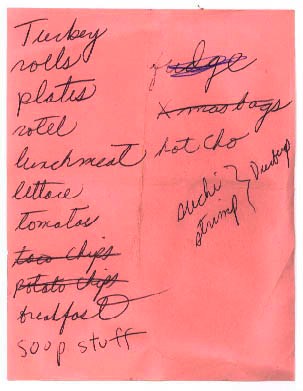 Turkey
rolls
plates
rotel
lunchmeat
lettace
tomatos
taco chips
potato chips
breakfast
soop stuff
fudge
Xmas bags
hot cho
suchi
strimp